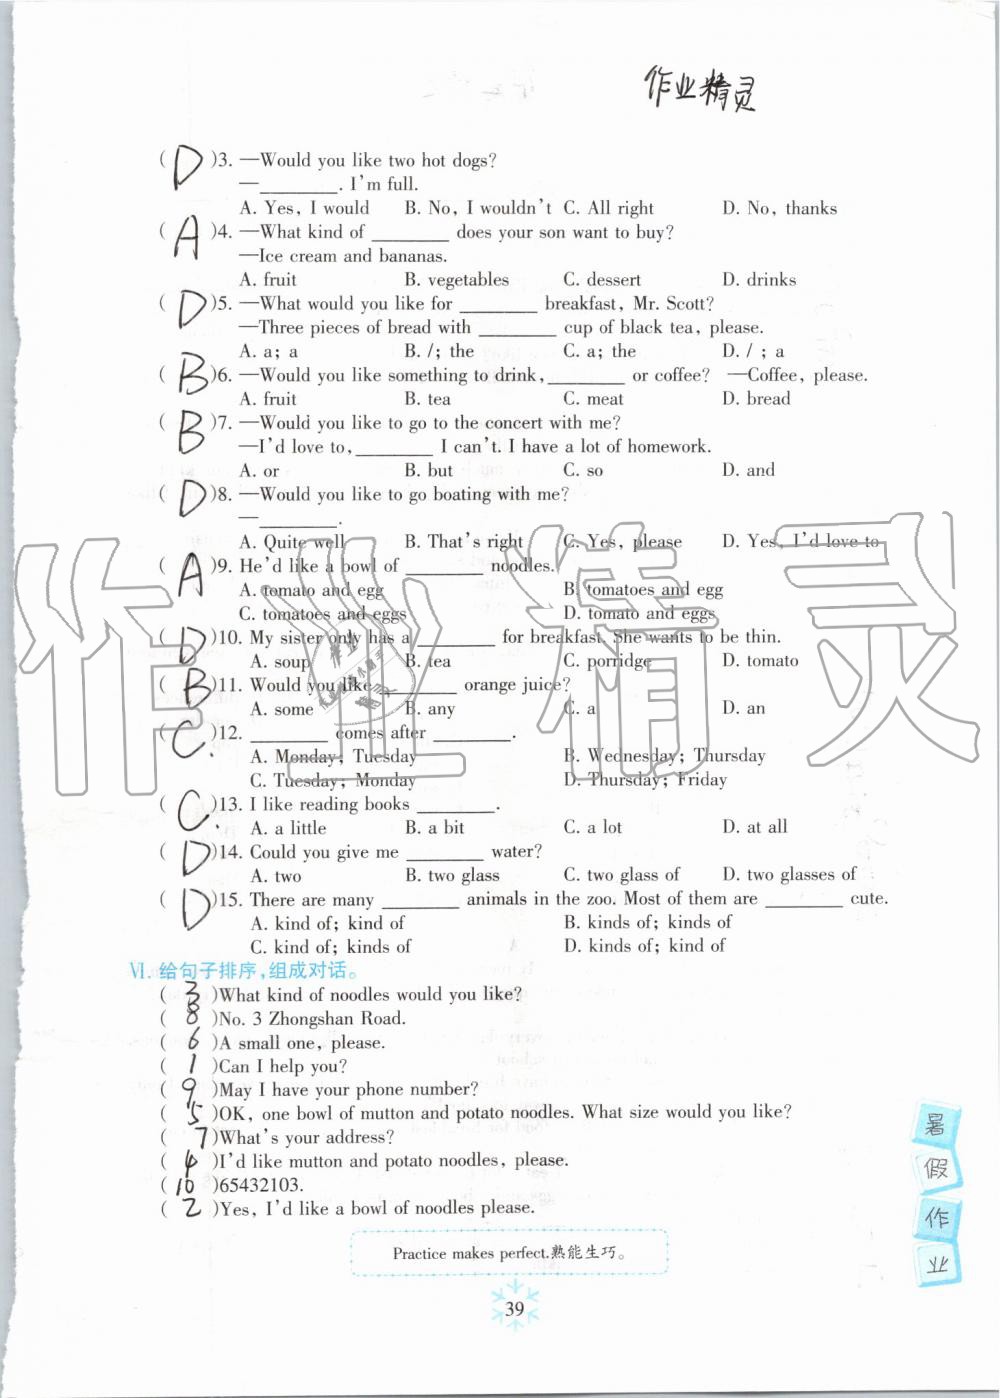 作业精灵
( D )3. —Would you like two hot dogs?
—________. I'm full.
A. Yes, I would B. No, I wouldn't C. All right D. No, thanks
( A )4. —What kind of ________ does your son want to buy?
—Ice cream and bananas.
A. fruit B. vegetables C. dessert D. drinks
( D )5. —What would you like for ________ breakfast, Mr. Scott?
—Three pieces of bread with ________ cup of black tea, please.
A. a; a B. /; the C. a; the D. / ; a
( B )6. —Would you like something to drink, ________ or coffee? —Coffee, please.
A. fruit B. tea C. meat D. bread
( B )7. —Would you like to go to the concert with me?
—I'd love to, ________ I can't. I have a lot of homework.
A. or B. but C. so D. and
( D )8. —Would you like to go boating with me?
—________.
A. Quite well B. That's right C. Yes, please D. Yes, I'd love to
( A )9. He'd like a bowl of ________ noodles.
A. tomato and egg B. tomatoes and egg
C. tomatoes and eggs D. tomato and eggs
( D )10. My sister only has a ________ for breakfast. She wants to be thin.
A. soup B. tea C. porridge D. tomato
( B )11. Would you like ________ orange juice?
A. some B. any C. a D. an
( C )12. ________ comes after ________.
A. Monday; Tuesday B. Wednesday; Thursday
C. Tuesday; Monday D. Thursday; Friday
( C )13. I like reading books ________.
A. a little B. a bit C. a lot D. at all
( D )14. Could you give me ________ water?
A. two B. two glass C. two glass of D. two glasses of
( D )15. There are many ________ animals in the zoo. Most of them are ________ cute.
A. kind of; kind of B. kinds of; kinds of
C. kind of; kinds of D. kinds of; kind of
Ⅵ. 给句子排序,组成对话。
( 3 )What kind of noodles would you like?
( 8 )No. 3 Zhongshan Road.
( 6 )A small one, please.
( 1 )Can I help you?
( 9 )May I have your phone number?
( 5 )OK, one bowl of mutton and potato noodles. What size would you like?
( 7 )What's your address?
( 4 )I'd like mutton and potato noodles, please.
( 10 )65432103.
( 2 )Yes, I'd like a bowl of noodles please.
Practice makes perfect.熟能生巧。
39
暑
假
作
业
作业精灵